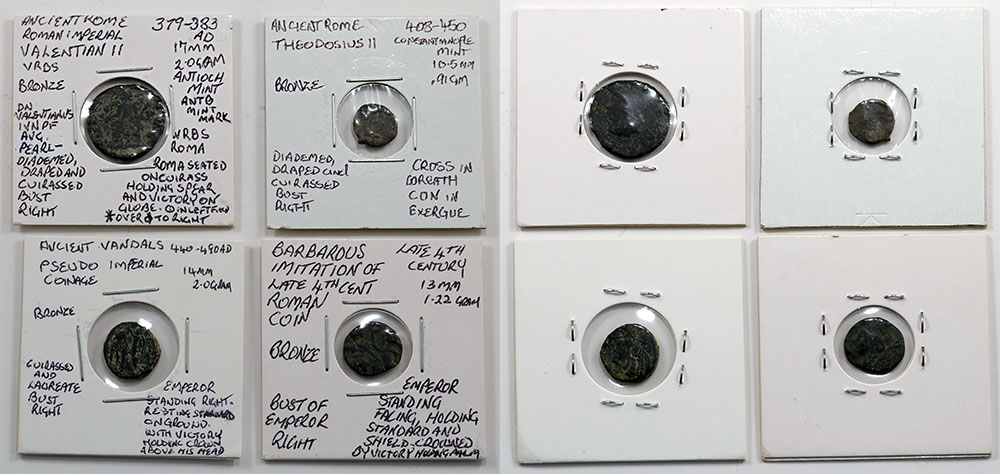 ANCIENT ROME
ROMAN IMPERIAL
VALENTIAN II
VRBS
BRONZE
DN
VALENTIANUS
IVN PF
AVG.
PEARL-
DIADEMED,
DRAPED AND
CUIRASSED
BUST
RIGHT
379-383
AD
17MM
2.0GRAM
ANTIOCH
MINT
ANTB
MINT
MARK
VRBS
ROMA
ROMA SEATED
ON CUIRASS
HOLDING SPEAR
AND VICTORY ON
GLOBE. Θ IN LEFT FIELD
* OVER Φ TO RIGHT
ANCIENT ROME
THEODOSIUS II
BRONZE
DIADEMED,
DRAPED and
CUIRASSED
BUST
RIGHT
408-450
CONSTANTINOPLE
MINT
10.5MM
.91GM
CROSS IN
WREATH
CON IN
EXERGUE
ANCIENT VANDALS 440-490AD
PSEUDO IMPERIAL
COINAGE
14MM
2.0GRAM
BRONZE
CUIRASSED
AND
LAOREATE
BUST
RIGHT
EMPEROR
STANDING RIGHT.
RESTING STANDARD
ON GROUND.
WITH VICTORY
HOLDING CROWN
ABOVE HIS HEAD
BARBAROUS
IMITATION OF
LATE 4TH CENT
ROMAN
COIN
BRONZE
BUST OF
EMPEROR
RIGHT
LATE 4TH
CENTURY
13MM
1.22 GRAM
EMPEROR
STANDING
FACING, HOLDING
STANDARD AND
SHIELD. CROWNED
BY VICTORY HOLDING PALM